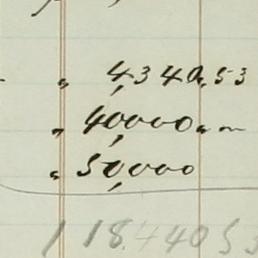 " 4,340.53
" 40,000.00
" 50,000
118.440 53